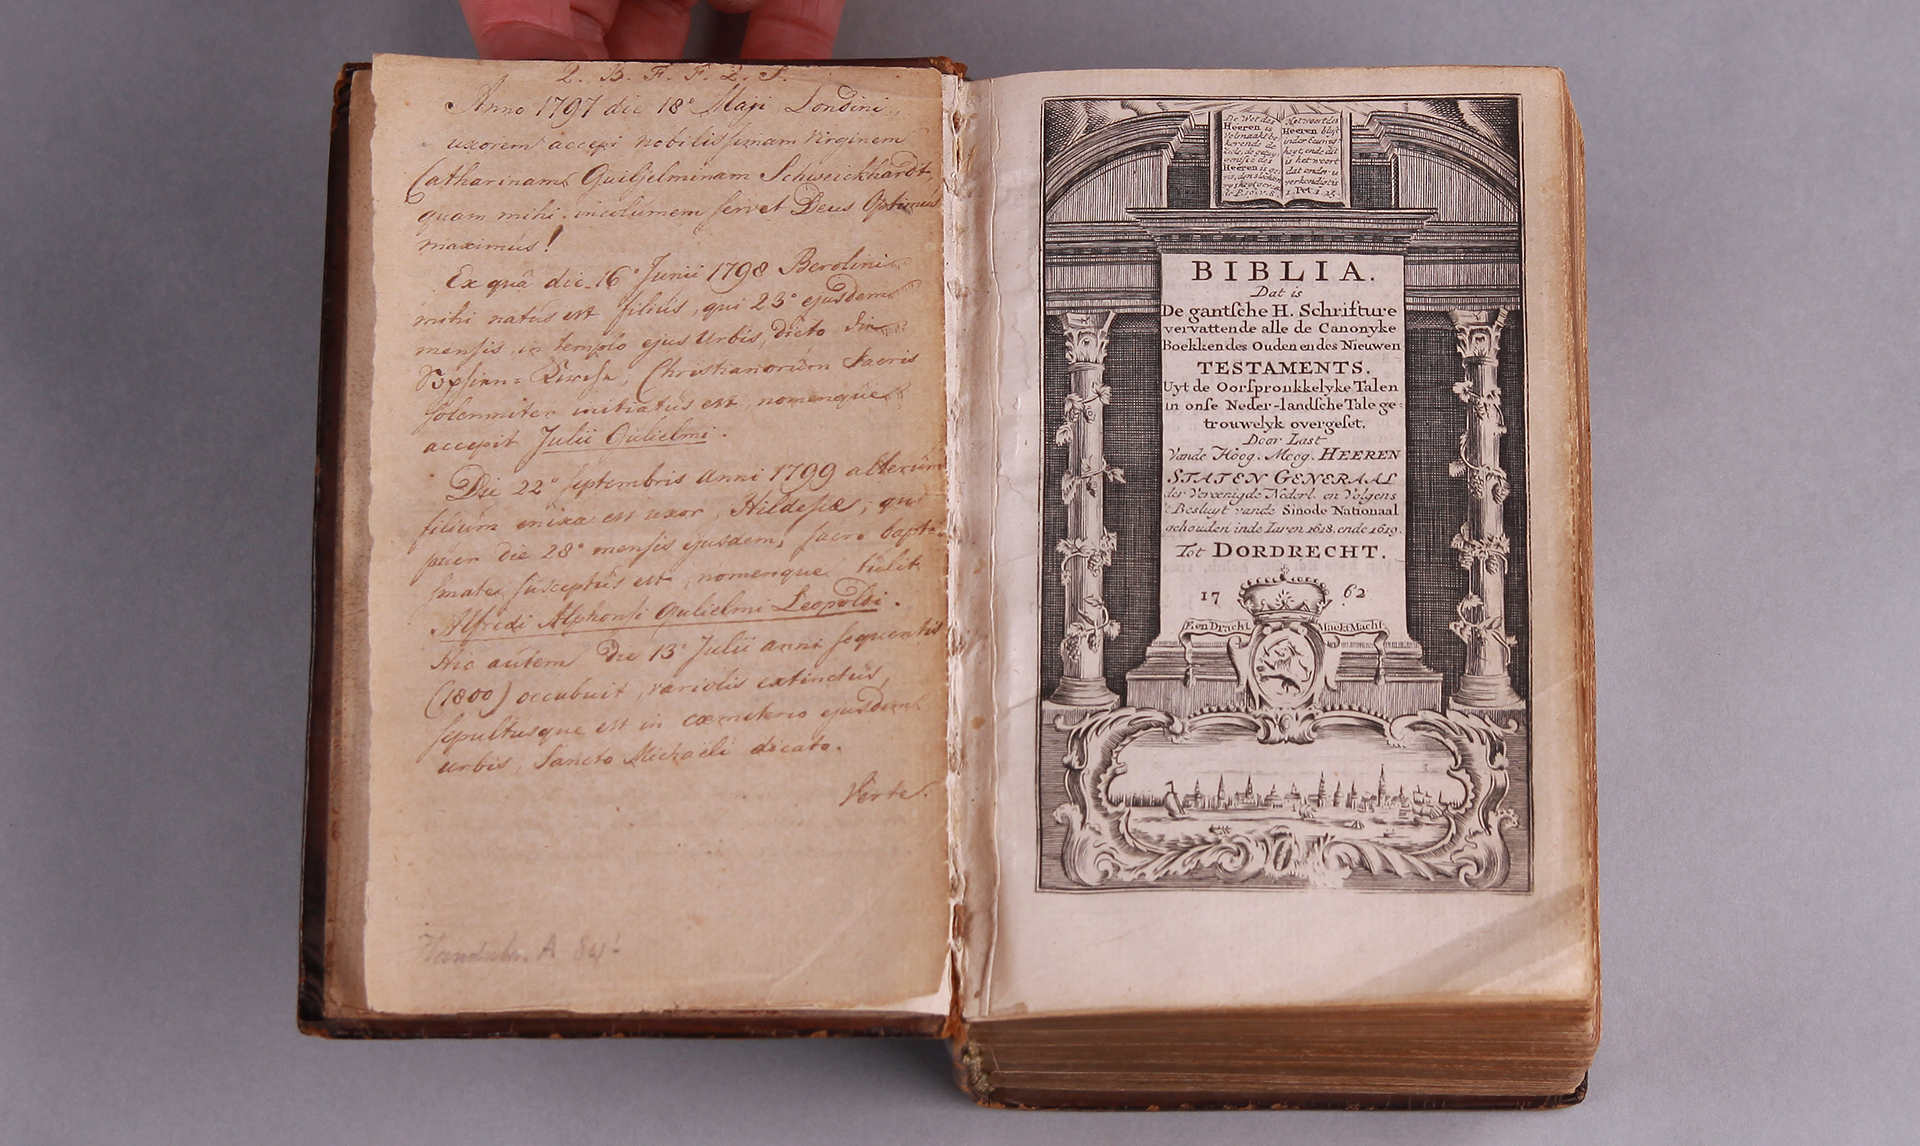 Q. B. F. F. Q. S.
Anno 1797 die 18° Maji Londini
uxorem accepi nobilissimam virginem
Catharinam Guilhelminam Schweickhardt
quam mihi incolumem servet Deus Optimus
maximus!
Ex quâ die 16° Junii 1798 Berolini
mihi natus est filius, qui 23° ejusdem
mensis in templo ejus Urbis, dicto die
Christianorum sacris
solemniter initiatus est, nomenque
accepit Julii Gulielmi.
Die 22° septembris anni 1799 alterum
filium enixa est uxor, Hildesiæ, qui
puer die 28° mensis ejusdem, sacro bapti-
smate susceptus est, nomenque tulit
Alfredi Alphonsi Gulielmi Leopoldi.
Hic autem die 13° Julii anni sequentis
(1800) occubuit, variolis extinctus,
sepultusque est in cœmeterio ejusdem
urbis, Sancto Michaëli dicato.
Verte.
A 84
De Wet des
Heeren is
Heeren is
Het woord des
Heeren blyft
is het woort
dat onder u
verkondigt is
1. Pet. 1. 25.
BIBLIA.
Dat is
De gantsche H. Schrifture
vervattende alle de Canonyke
Boekken des Ouden en des Nieuwen
TESTAMENTS.
Uyt de Oorspronkkelyke Talen
in onse Neder-landsche Tale ge-
trouwelyk overgeset.
Door Last
Vande Hoog. Moog. HEEREN
STATEN GENERAAL
der Vereenigde Nederl. en Volgens
't Besluyt vande Sinode Nationaal
gehouden inde Iaren 1618. ende 1619.
Tot DORDRECHT.
17 62
Een Dracht Maekt Macht